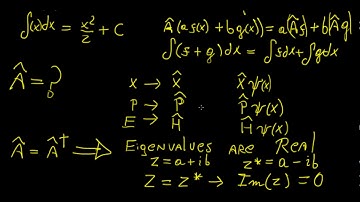 ∫(x)dx = x²/2 + C
Â(a s(x) + b g(x)) = a(Âs) + b(Âg)
∫(s + g)dx = ∫sdx + ∫gdx
Â = ?
x → X̂ X̂ψ(x)
P → P̂ P̂ψ(x)
E → Ĥ Ĥψ(x)
Â = Â† ⟹ EIGENVALUES ARE REAL
z = a + ib z* = a - ib
Z = Z* → Im(z) = 0